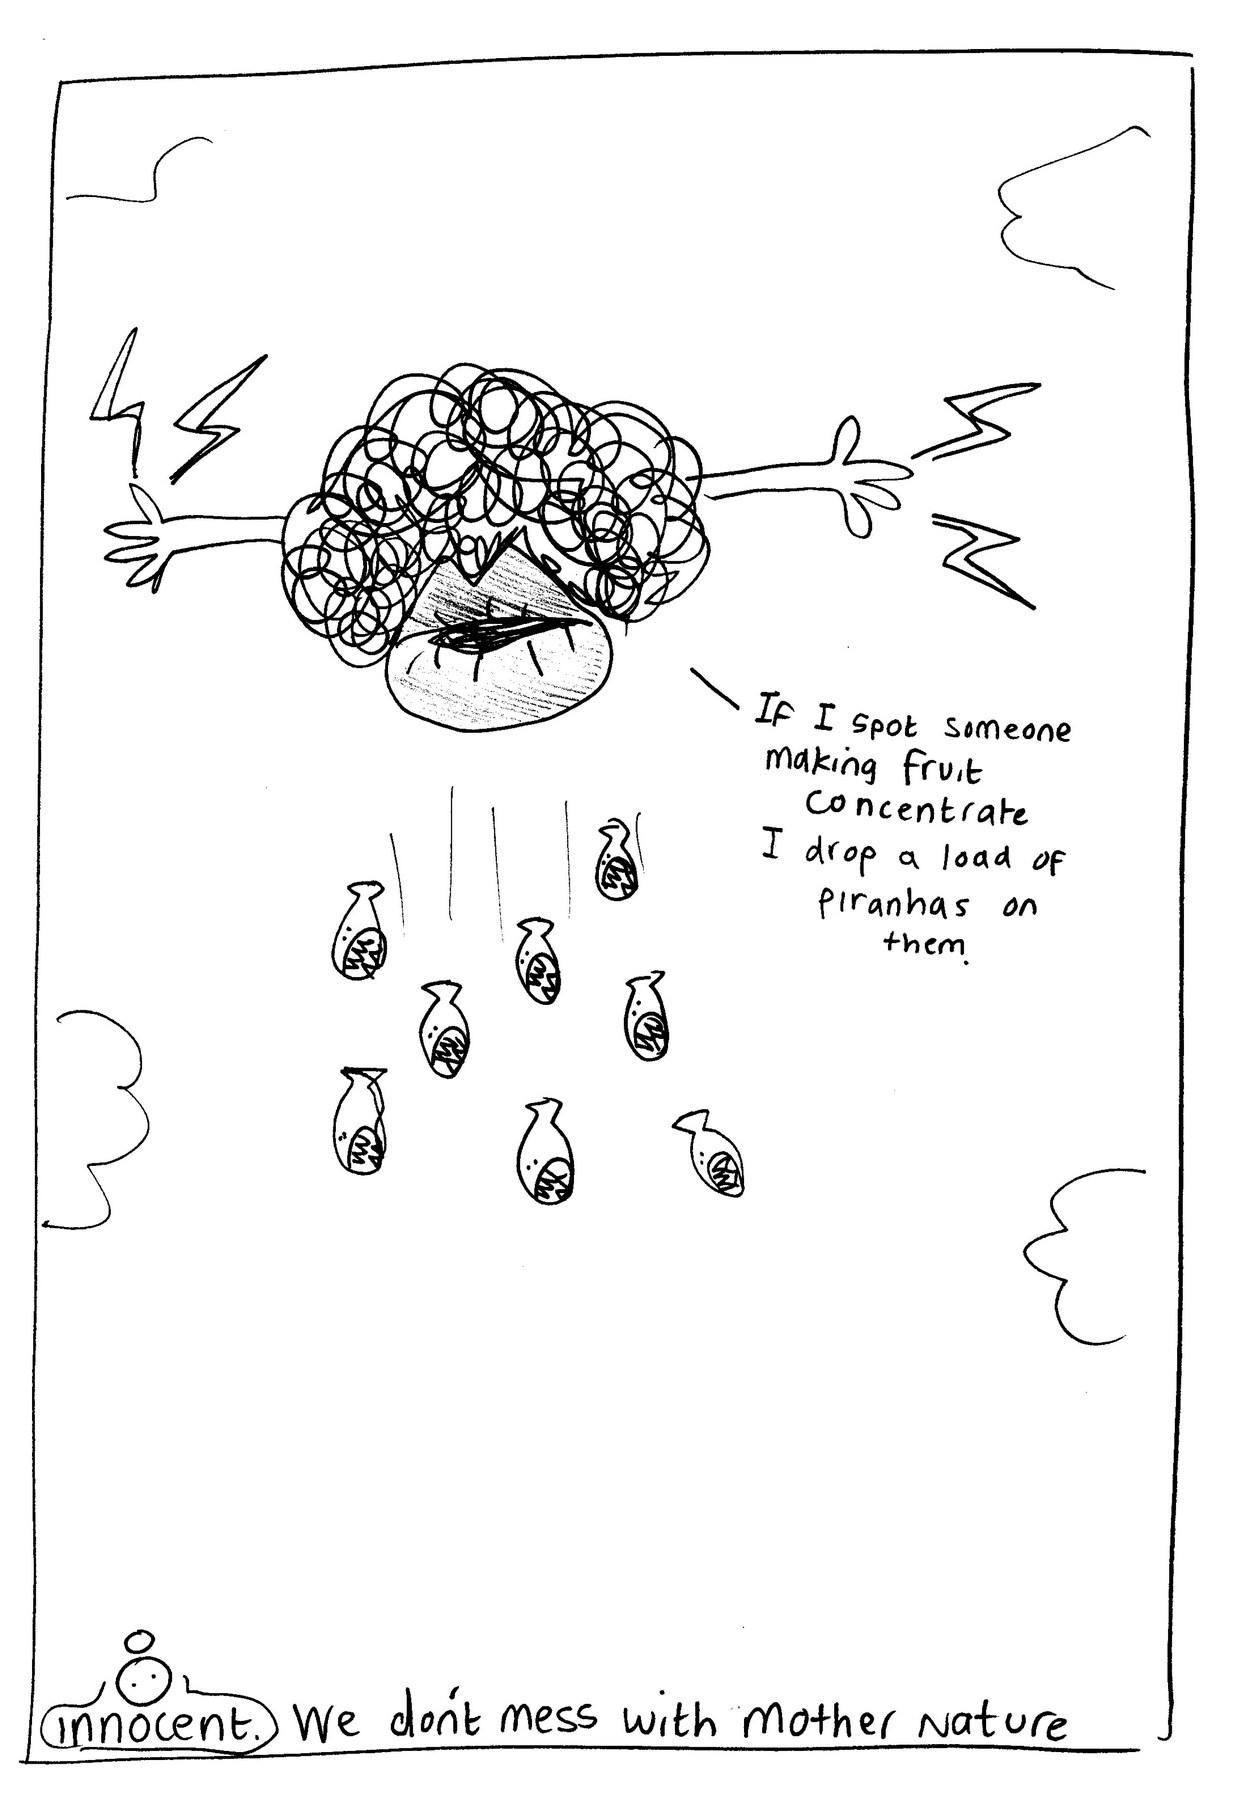 If I spot someone
making fruit
concentrate
I drop a load of
piranhas on
them.
innocent. We don't mess with mother nature